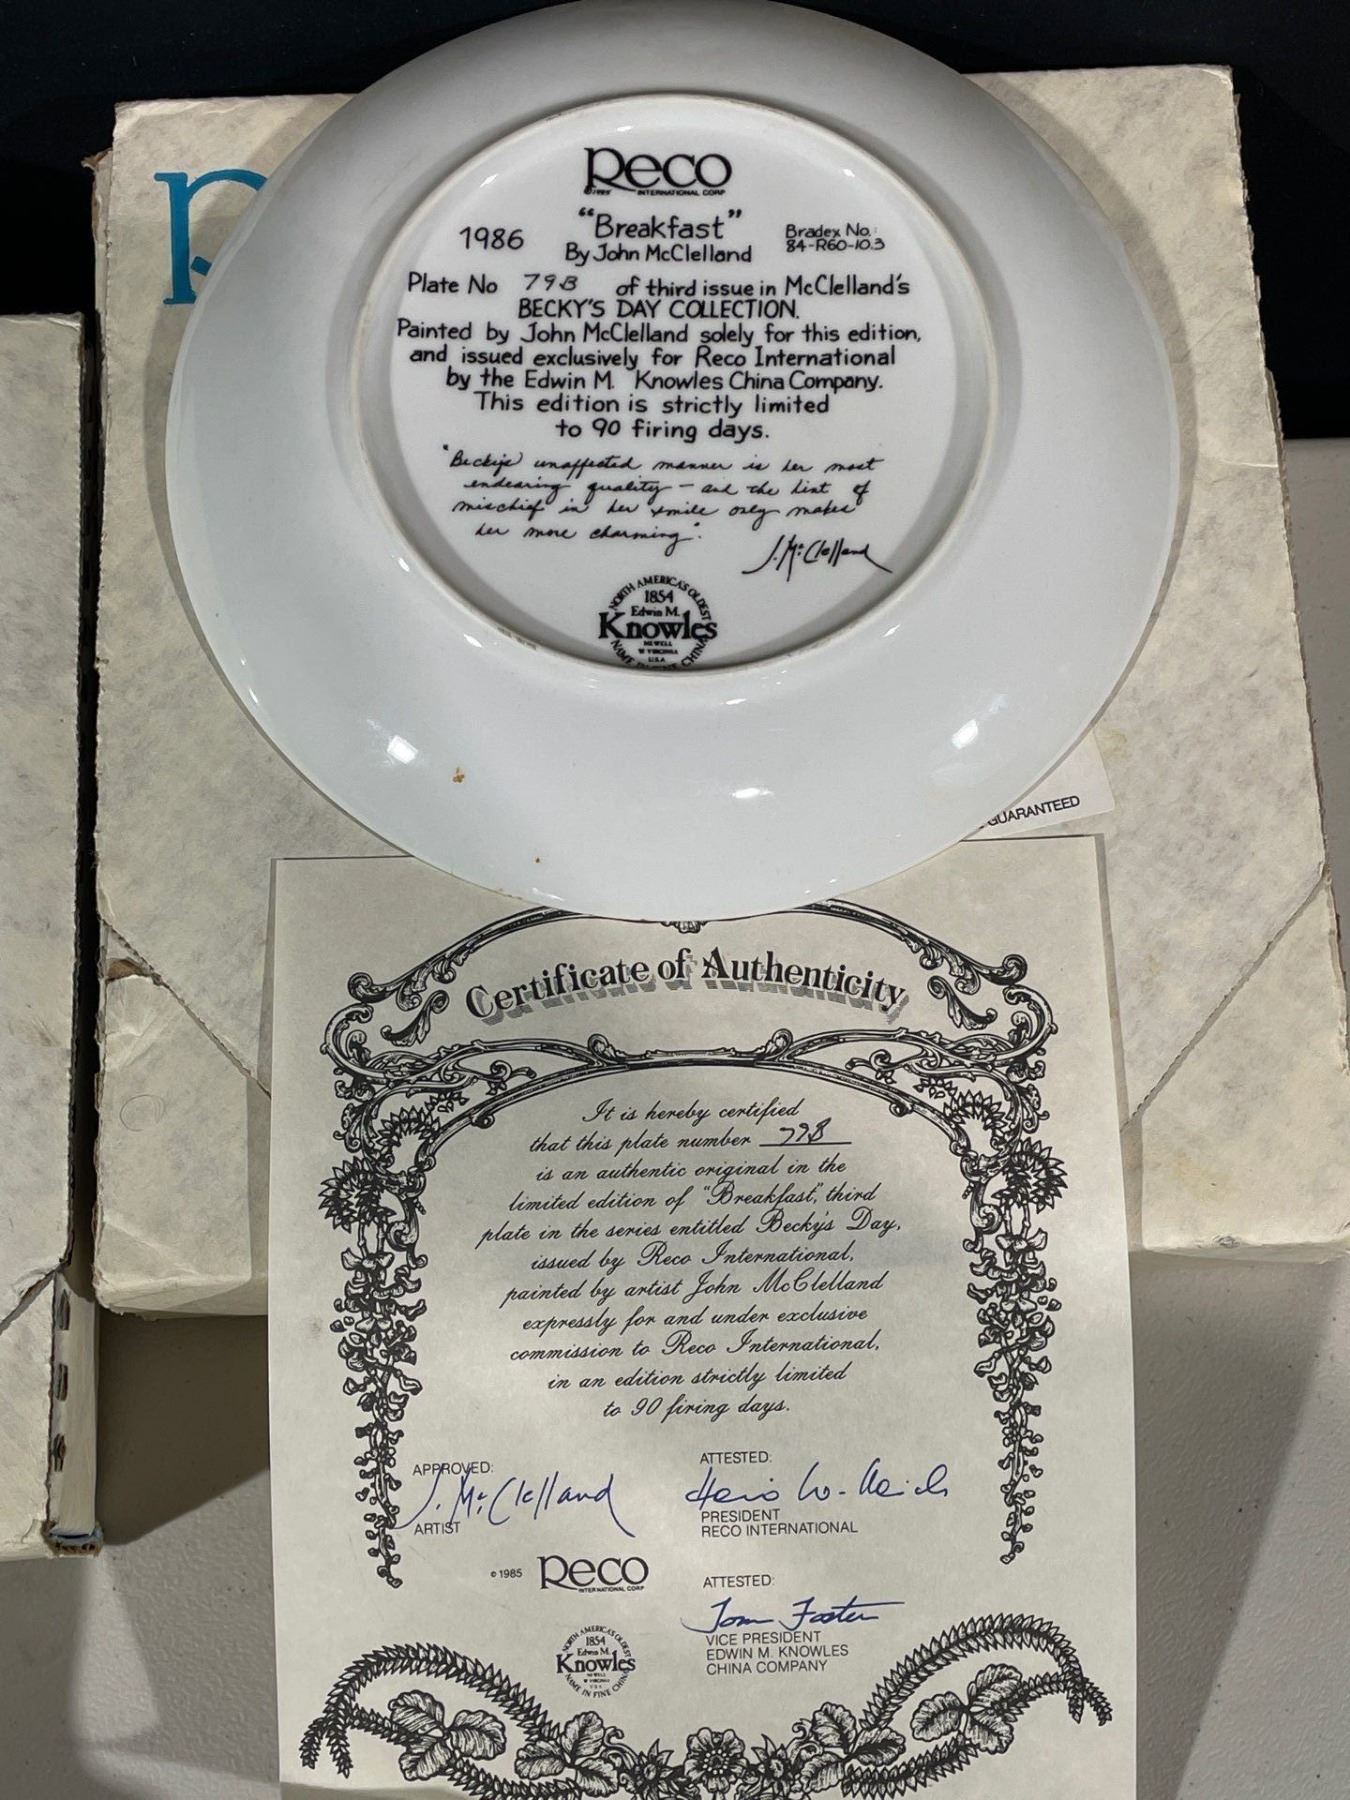 Reco
INTERNATIONAL CORP
"Breakfast"
1986
By John McClelland
Bradex No.:
84-R60-10.3
Plate No 79B of third issue in McClelland's
BECKY'S DAY COLLECTION.
Painted by John McClelland solely for this edition,
and issued exclusively for Reco International
by the Edwin M. Knowles China Company.
This edition is strictly limited
to 90 firing days.
"Becky's unaffected manner is her most
endearing quality – and the hint of
mischief in her smile only makes
her more charming".
J. McClelland
NORTH AMERICA'S OLDEST
1854
Edwin M.
Knowles
NEWELL
W VIRGINIA
U.S.A
NAME IN FINE CHINA
GUARANTEED
Certificate of Authenticity
It is hereby certified
that this plate number 79B
is an authentic original in the
limited edition of "Breakfast", third
plate in the series entitled Becky's Day,
issued by Reco International,
painted by artist John McClelland
expressly for and under exclusive
commission to Reco International,
in an edition strictly limited
to 90 firing days.
APPROVED:
J. McClelland
ARTIST
ATTESTED:
PRESIDENT
RECO INTERNATIONAL
© 1985 Reco
INTERNATIONAL CORP
ATTESTED:
Tom Foster
VICE PRESIDENT
EDWIN M. KNOWLES
CHINA COMPANY
NORTH AMERICA'S OLDEST
1854
Edwin M.
Knowles
NEWELL
W VIRGINIA
U.S.A
NAME IN FINE CHINA